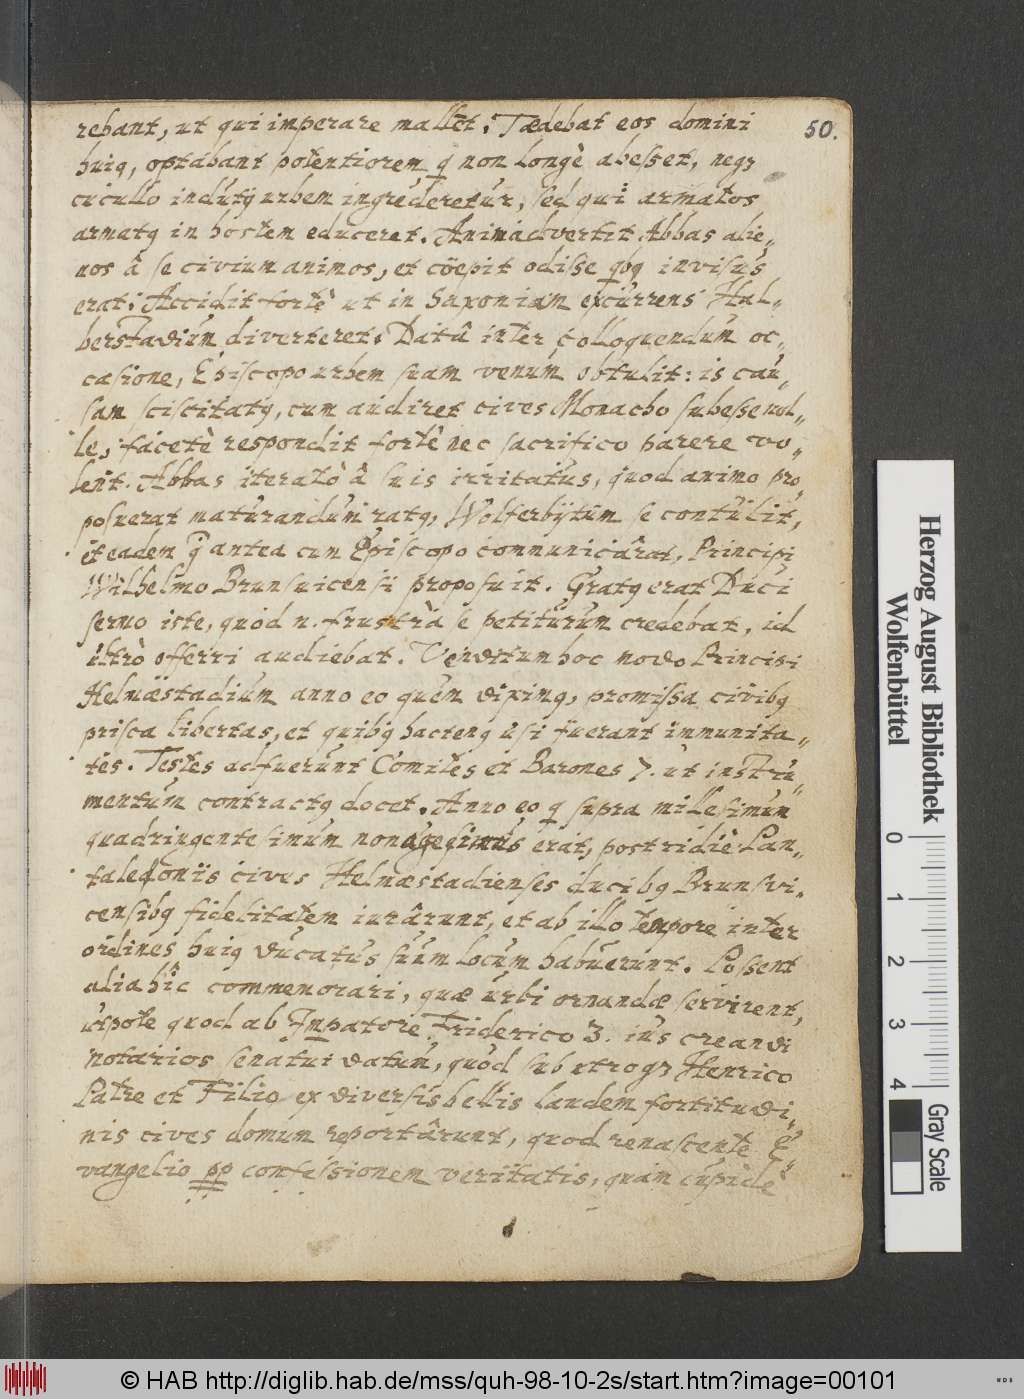 50.
rebant, ut qui imperare mallēt. Tædebat eos domini
huiꝯ, optabant potentiorem q̱ non longè abesset, neqȝ
cucullo indutꝯ urbem ingrederetur, sed qui armatos
armatꝯ in hostem educeret. Animadvertit Abbas alie„
nos â se civium animos, et cöepit odisse qbꝯ invisus
erat: Accidit fortè ut in Saxoniam excurrens Hal„
berstadium diverteret. Datâ inter colloquendum oc„
casione, Episcopo urbem suam venum obtulit: is cau„
sam sciscitatꝯ, cum audiret cives Monacho subesse nol„
le, facetè respondit fortè nec sacrifico parere vo„
lēnt. Abbas iteratò â suis irritatus, quod animo pro„
posuerat maturandum ratꝯ, Wolferbÿtum se contulit,
et eadem q̄ antea cum Episcopo communicârat, Principi
Wilhelmo Brunsuicensi proposuit. Gratꝯ erat Duci
sermo iste, quod n. frustrà se petiturum credebat, id
ultrò offerri audiebat. Venditum hoc modo Principi
Helmæstadium anno eo quem diximꝯ, promissa civibꝯ
prisca libertas, et quibꝯ hactenꝯ usi fuerant immunita„
tes. Testes adfuerunt Comites et Barones 7. ut instru„
mentum contractꝯ docet. Anno eo q̱ supra millesimum
quadringentesimum nonagesimus erat, postridiè Pan„
taleonis cives Helmæstadienses ducibꝯ Brunsvi„
censibꝯ fidelitatem iurârunt, et ab illo tempore inter
ordines huiꝯ ducatus suum locum habuerunt. Possent
alia hîc commemorari, quæ urbi ornandæ servirent,
utpote quod ab Impatore Friderico 3. ius creandi
notarios senatui datum, quod sub utroqȝ Henrico
Patre et Filio ex diversis bellis laudem fortitudi„
nis cives domum reportârunt, quod renascente E„
vangelio pp confessionem veritatis, quam cupidè
Herzog August Bibliothek
Wolfenbüttel
0
1
2
3
4
Gray Scale
© HAB http://diglib.hab.de/mss/quh-98-10-2s/start.htm?image=00101